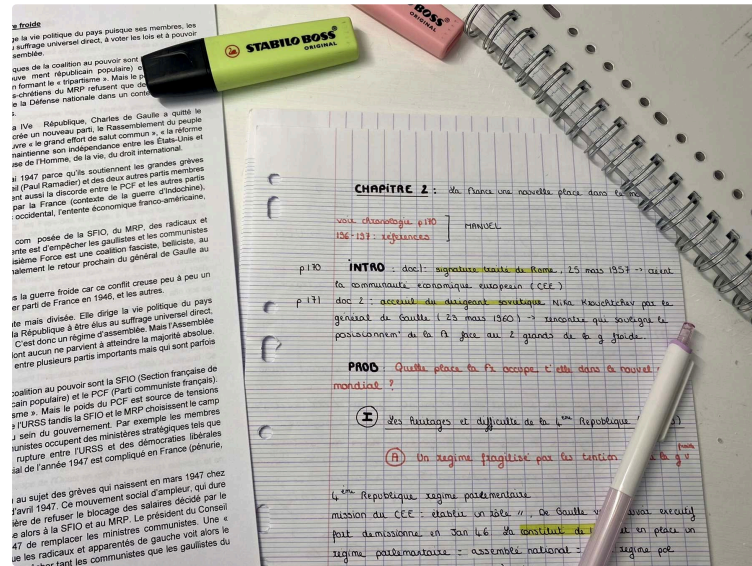 e froide
ge la vie politique du pays puisque ses membres, les
suffrage universel direct, à voter les lois et à pouvoir
semblée.
ques de la coalition au pouvoir sont
uve ment républicain populaire) e
n formant le « tripartisme ». Mais le p
s-chrétiens du MRP refusent que de
e la Défense nationale dans un conte
s.
a IVe République, Charles de Gaulle a quitté le
crée un nouveau parti, le Rassemblement du peuple
uvre « le grand effort de salut commun », « la réforme
maintienne son indépendance entre les États-Unis et
se de l'Homme, de la vie, du droit international.
ai 1947 parce qu'ils soutiennent les grandes grèves
eil (Paul Ramadier) et des deux autres partis membres
ent aussi la discorde entre le PCF et les autres partis
par la France (contexte de la guerre d'Indochine),
occidental, l'entente économique franco-américaine,
com posée de la SFIO, du MRP, des radicaux et
ente est d'empêcher les gaullistes et les communistes
isième Force est une coalition fasciste, belliciste, au
alement le retour prochain du général de Gaulle au
s la guerre froide car ce conflit creuse peu à peu un
er parti de France en 1946, et les autres.
te mais divisée. Elle dirige la vie politique du pays
la République à être élus au suffrage universel direct,
C'est donc un régime d'assemblée. Mais l'Assemblée
dont aucun ne parvient à atteindre la majorité absolue.
entre plusieurs partis importants mais qui sont parfois
coalition au pouvoir sont la SFIO (Section française de
cain populaire) et le PCF (Parti communiste français).
sme ». Mais le poids du PCF est source de tensions
e l'URSS tandis la SFIO et le MRP choisissent le camp
u sein du gouvernement. Par exemple les membres
unistes occupent des ministères stratégiques tels que
rupture entre l'URSS et des démocraties libérales
ial de l'année 1947 est compliqué en France (pénurie,
au sujet des grèves qui naissent en mars 1947 chez
d'avril 1947. Ce mouvement social d'ampleur, qui dure
ière de refuser le blocage des salaires décidé par le
e alors à la SFIO et au MRP. Le président du Conseil
47 de remplacer les ministres communistes. Une «
ue les radicaux et apparentés de gauche voit alors le
cher tant les communistes que les gaullistes du
STABILO BOSS
ORIGINAL
BOSS
ORIGINAL
CHAPITRE 2 : La France une nouvelle place dans le mo
voir chronologie p170
156-157 : références
MANUEL
p170 INTRO : doc1: signature traité de Rome, 25 mars 1957 → créent
la communauté economique européein (CEE)
p171 doc 2 : acceuil du dirigeant soviétique Nika Krouchtchev par le
général de Gaulle (23 mars 1960) → rencontre qui souligne le
de la Fr face au 2 grands de la g froide.
PROB : Quelle place la Fr occupe t'elle dans le nouvel
mondial ?
I Les héritages et difficulté de la 4ème République
A Un regime fragilisé par les tention la g froid
4ème Republique regime parlementaire
mission du CEE : établir un rôle // , De Gaulle executif
fort demissionne en Jan 46 La constitut de l en place un
regime parlementaire = assemblé national = regime